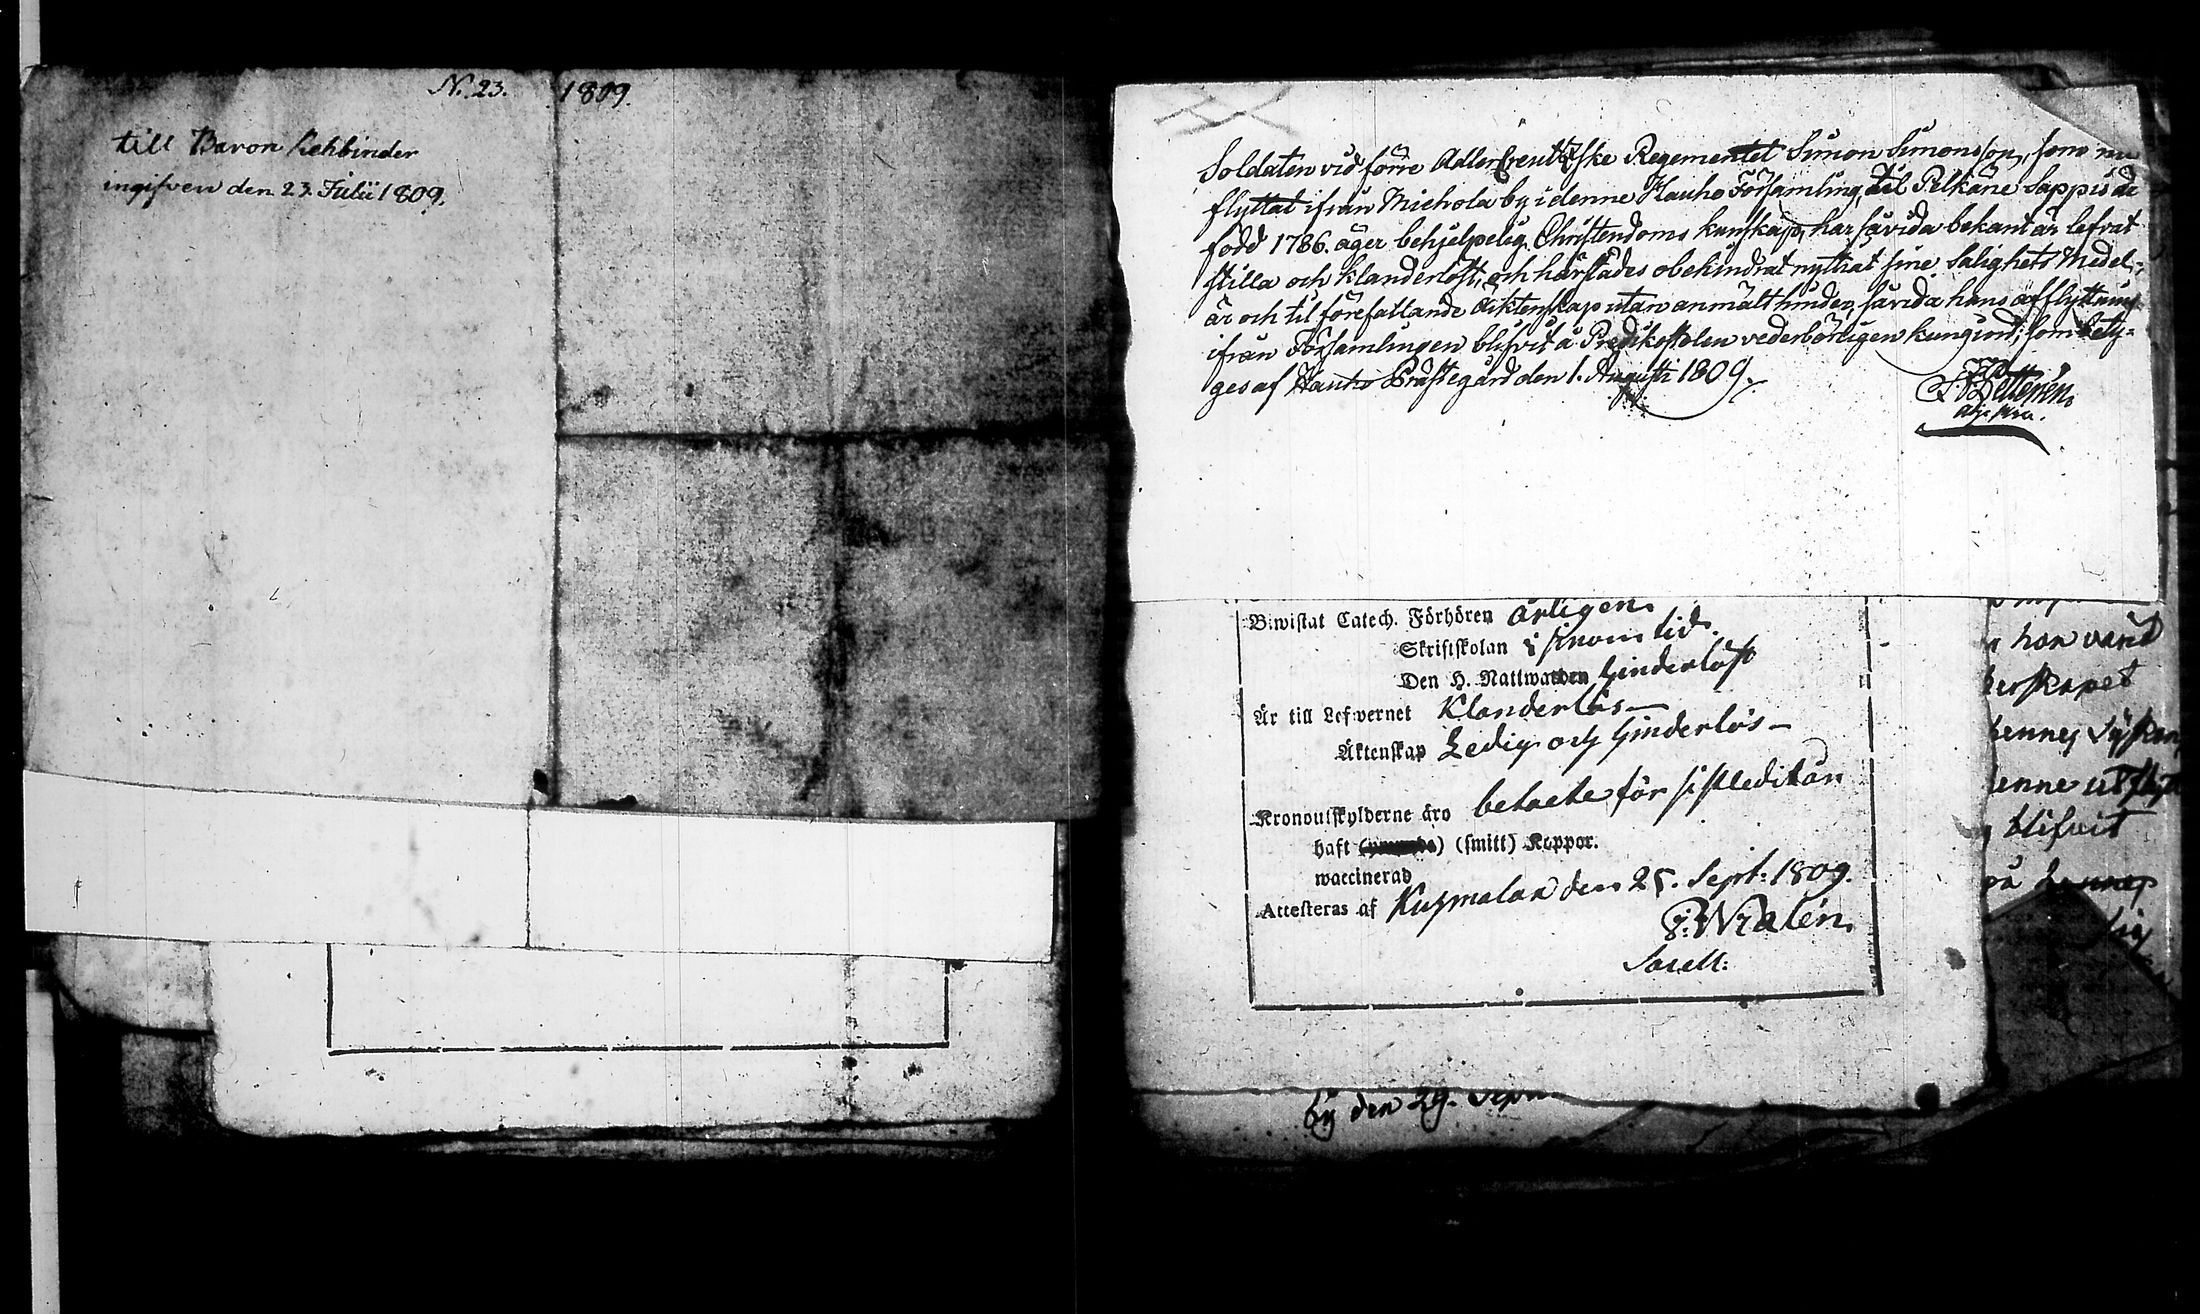 N. 23. 1809.
till Baron Rehbinder
ingifven den 23. Julii 1809.
Soldaten vid förre AdlerCreutzske Regementet Simon Simonsson, som nu
flyttat ifrån Miehola by i denne Hauho Församling, til Pelkäne Sappis är
född 1786. äger behjelpelig Christendoms kunskap, har såvida bekant är lefvat
stilla och klanderlöst, och härstädes obehindrat nyttiat sine Salighets Medel;
är och til förefallande äktenskap utan anmält hinder, såvida hans afflyttning
ifrån Församlingen blifvit å Predikostolen vederbörligen kungjord; som bety-
ges af Hauho Prästegård den 1. Augusti 1809.
Biwistat Catech. Förhören årligen
Skriftskolan i sinom tid.
Den H. Nattwarden hinderlöst
Är till Lefwernet Klanderlös
Äktenskap Ledig och hinderlös
Kronoutskylderne äro betalte för sistledit år
haft (smitt) Koppor.
waccinerad
Attesteras af Kuhmalax den 25. Sept: 1809.
Sacell:
hon varit
skapet
hennes
henne
blifvit
på hennes
by den 29. Sept